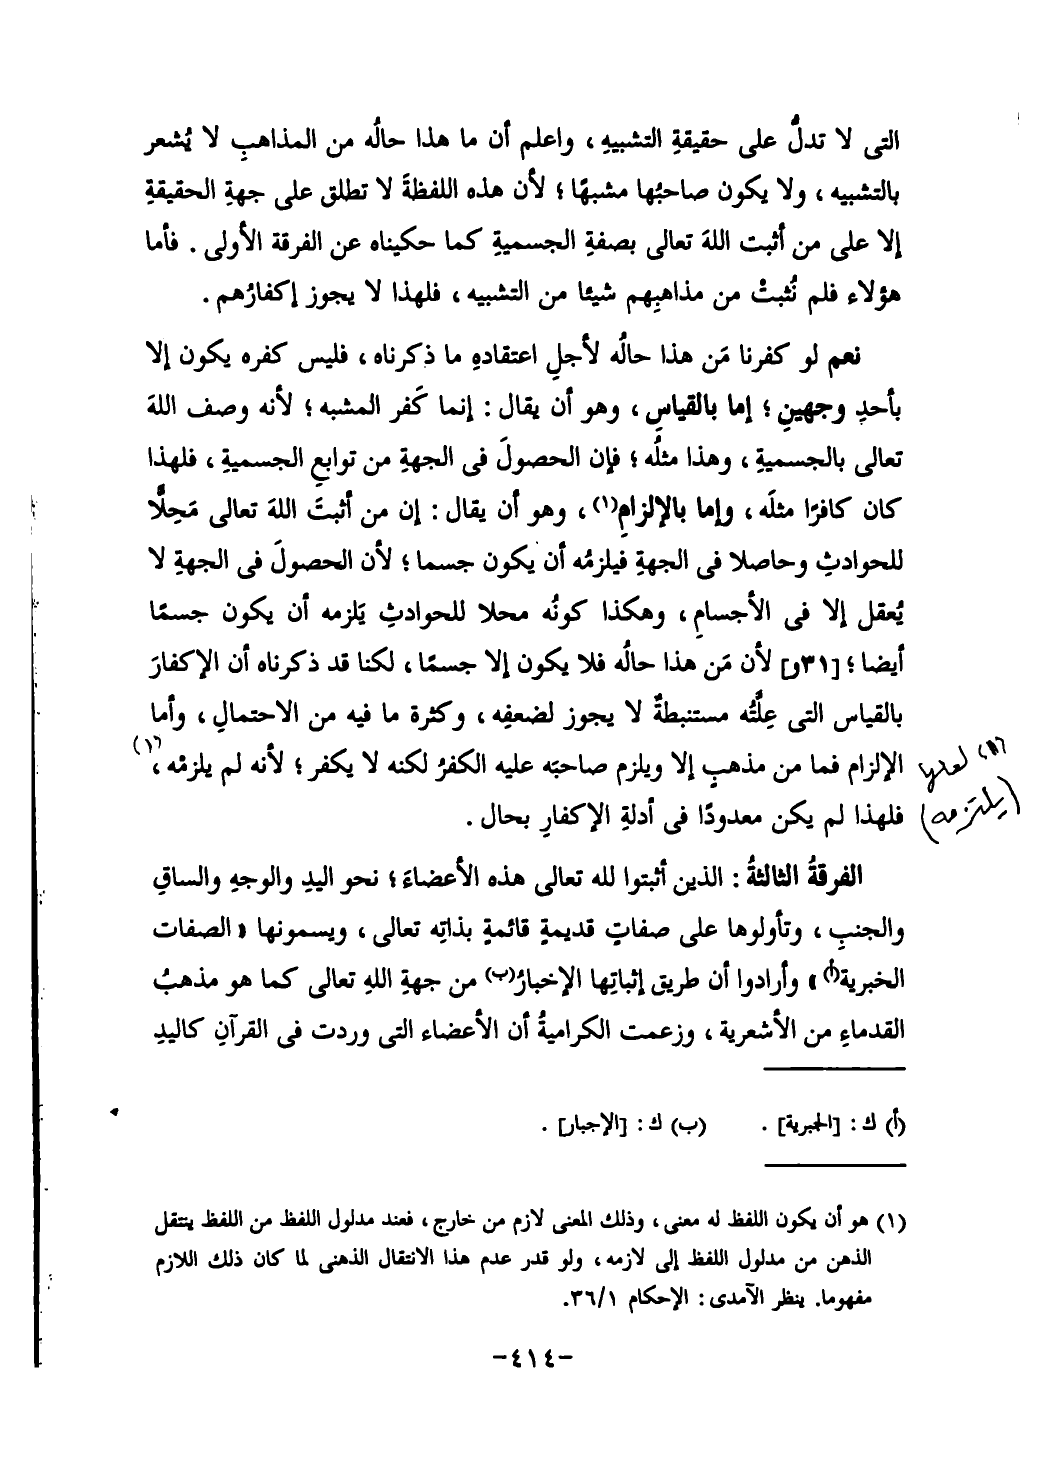 التى لا تدلُّ على حقيقةِ التشبيهِ ، واعلم أن ما هذا حالُه من المذاهبِ لا يُشعر
بالتشبيه ، ولا يكون صاحبُها مشبهًا ؛ لأن هذه اللفظةَ لا تطلق على جهةِ الحقيقةِ
إلا على من أثبت اللهَ تعالى بصفةِ الجسميةِ كما حكيناه عن الفرقة الأولى . فأما
هؤلاء فلم نُثبتْ من مذاهبِهم شيئا من التشبيه ، فلهذا لا يجوز إكفارُهم .
نعم لو كفرنا مَن هذا حالُه لأجلِ اعتقادهِ ما ذكرناه ، فليس كفره يكون إلا
بأحدِ وجهينِ ؛ إما بالقياسِ ، وهو أن يقال : إنما كَفر المشبه ؛ لأنه وصف اللهَ
تعالى بالجسميةِ ، وهذا مثلُه ؛ فإن الحصولَ فى الجهةِ من توابعِ الجسميةِ ، فلهذا
كان كافرًا مثلَه ، وإما بالإلزامِ(١) ، وهو أن يقال : إن من أثبتَ اللهَ تعالى مَحِلًّا
للحوادثِ وحاصلا فى الجهةِ فيلزمُه أن يكون جسما ؛ لأن الحصولَ فى الجهةِ لا
يُعقل إلا فى الأجسامِ ، وهكذا كونُه محلا للحوادثِ يَلزمه أن يكون جسمًا
أيضا ؛ [٣١و] لأن مَن هذا حالُه فلا يكون إلا جسمًا ، لكنا قد ذكرناه أن الإكفارَ
بالقياس التى عِلَّتُه مستنبطةٌ لا يجوز لضعفِه ، وكثرة ما فيه من الاحتمالِ ، وأما
الإلزام فما من مذهبٍ إلا ويلزم صاحبَه عليه الكفرُ لكنه لا يكفر ؛ لأنه لم يلزمْه ، (١)
(١) لعلها
(يلتزمه)
فلهذا لم يكن معدودًا فى أدلةِ الإكفارِ بحال .
الفرقةُ الثالثةُ : الذين أثبتوا لله تعالى هذه الأعضاءَ ؛ نحو اليدِ والوجهِ والساقِ
والجنبِ ، وتأولوها على صفاتٍ قديمةٍ قائمةٍ بذاتِه تعالى ، ويسمونها « الصفات
الخبرية(أ) » وأرادوا أن طريق إثباتِها الإخبارُ(ب) من جهةِ اللهِ تعالى كما هو مذهبُ
القدماءِ من الأشعرية ، وزعمت الكراميةُ أن الأعضاء التى وردت فى القرآنِ كاليدِ
(أ) ك : [الجبرية] . (ب) ك : [الإجبار] .
(١) هو أن يكون اللفظ له معنى ، وذلك المعنى لازم من خارج ، فعند مدلول اللفظ من اللفظ ينتقل
الذهن من مدلول اللفظ إلى لازمه ، ولو قدر عدم هذا الانتقال الذهنى لما كان ذلك اللازم
مفهوما. ينظر الآمدى : الإحكام ٣٦/١.
-٤١٤-